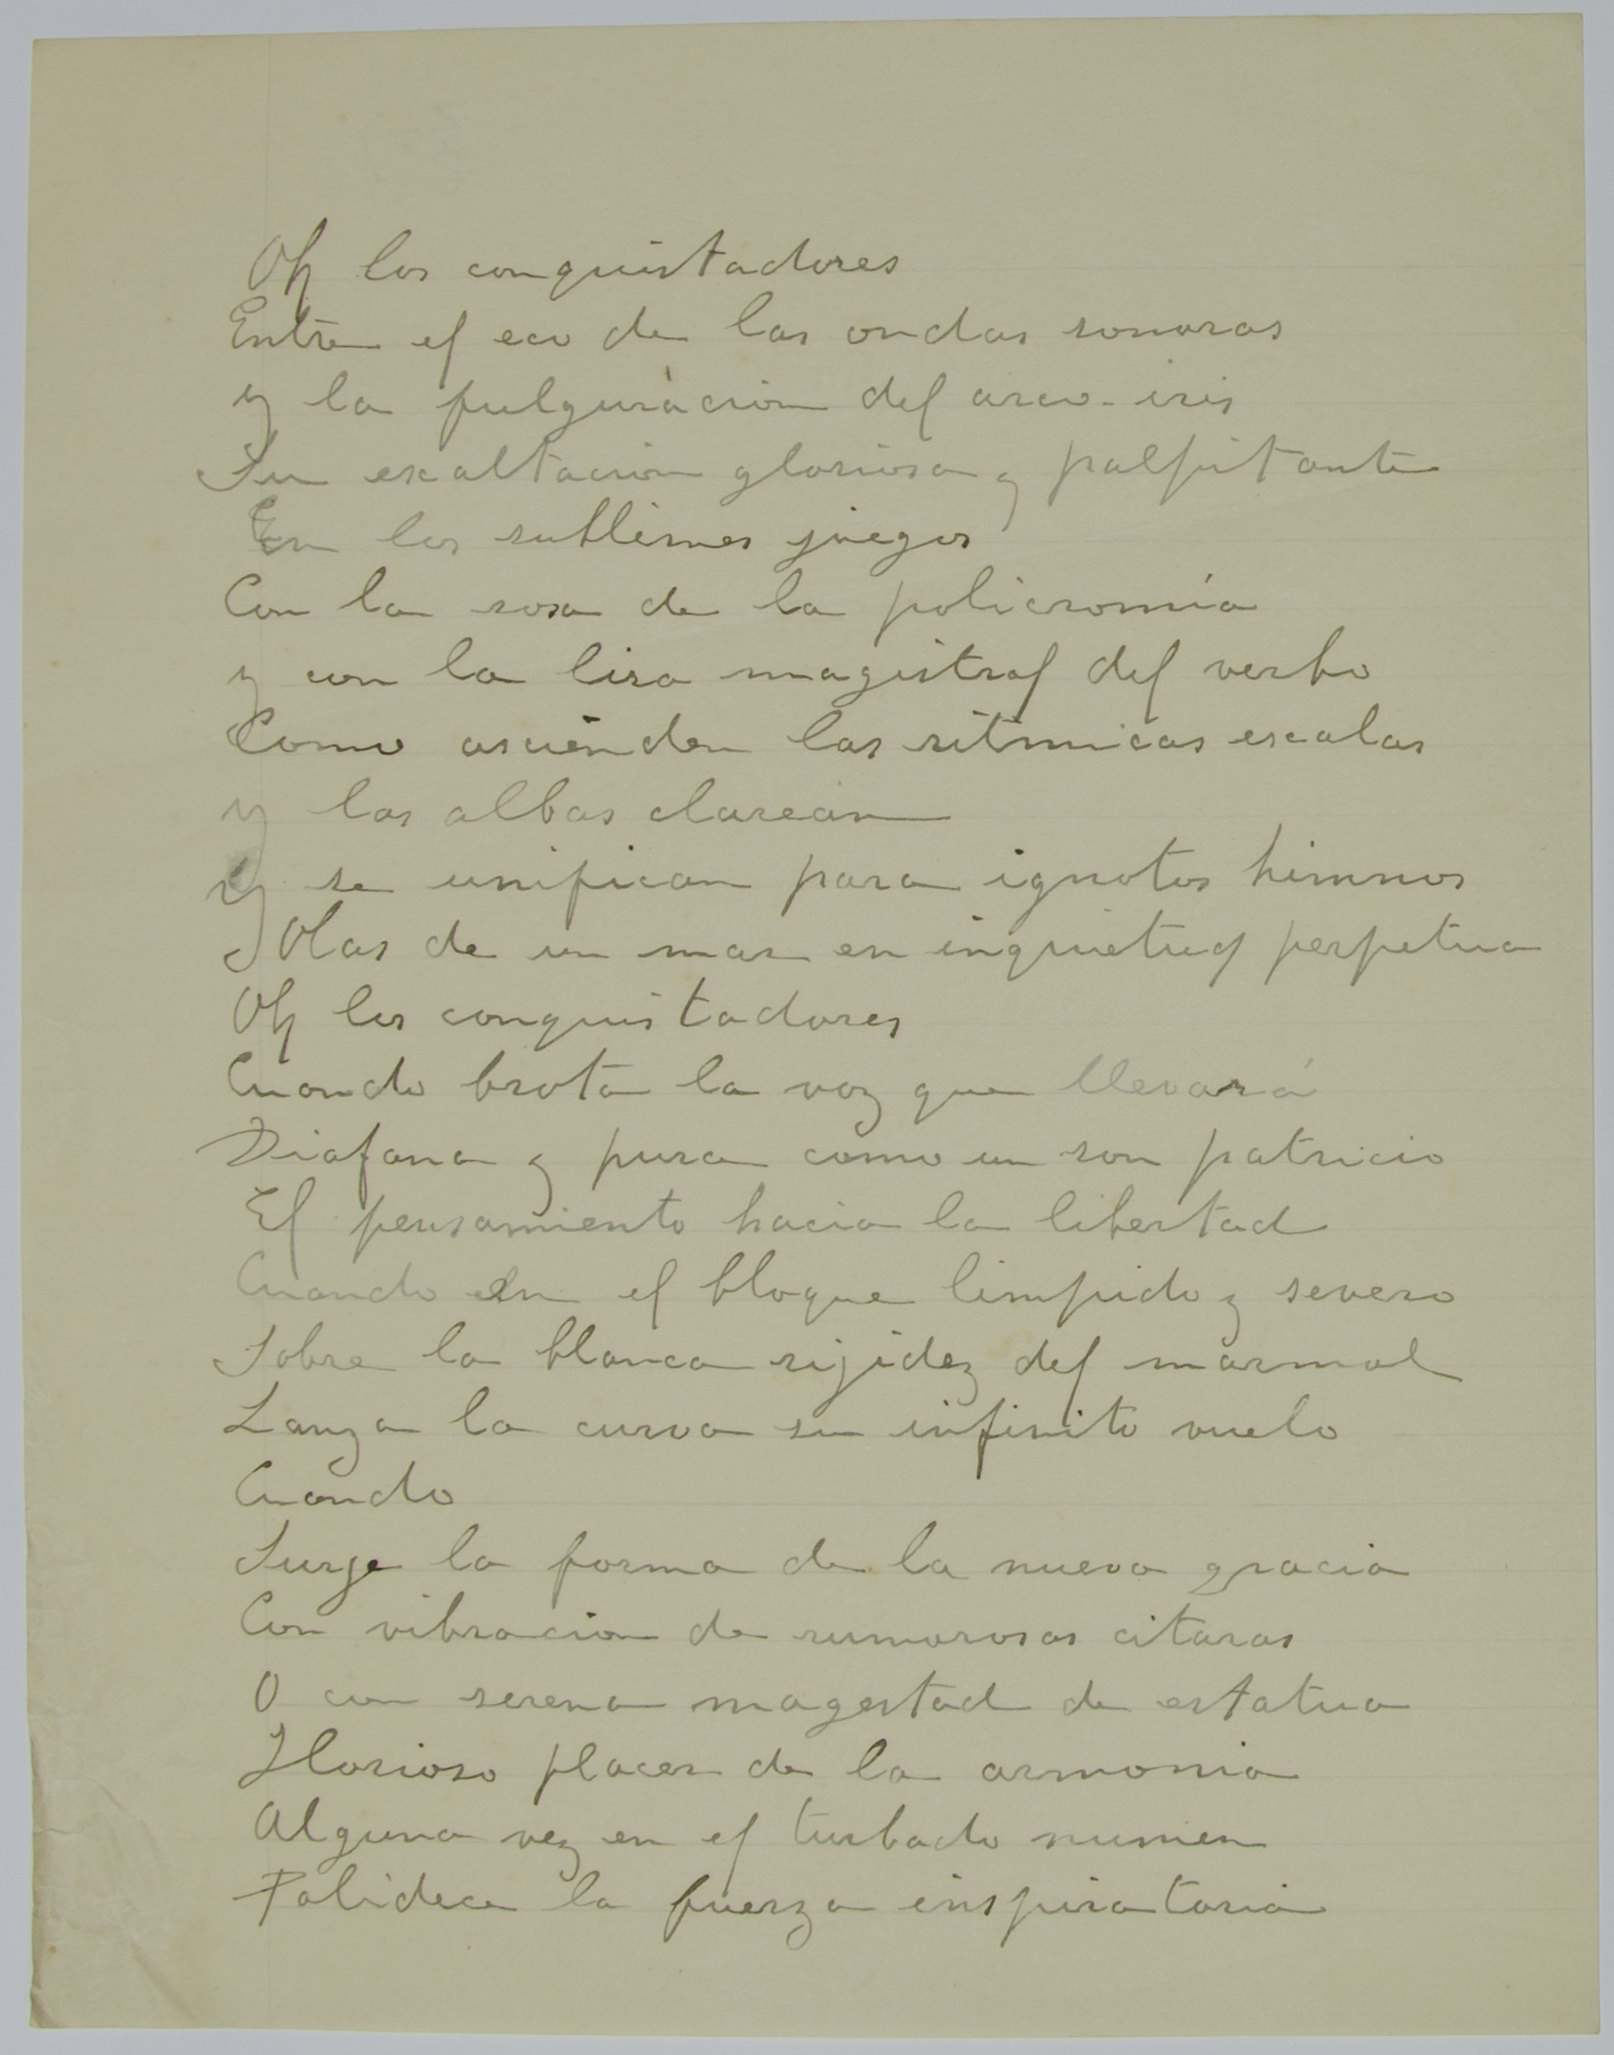 Oh los conquistadores
Entre el eco de las ondas sonoras
y la fulguración del arco-iris
Su exaltacion gloriosa y palpitante
En los sublimes juegos
Con la rosa de la policromía
y con la lira magistral del verbo
Como ascienden las ritmicas escalas
y las albas clarean
y se unifican para ignotos himnos
Olas de un mar en inquietud perpetua
Oh los conquistadores
Cuando brota la voz que llevará
Diafana y pura como un son patricio
El pensamiento hacia la libertad
Cuando en el bloque limpido y severo
Sobre la blanca rijidez del marmol
Lanza la curva su infinito vuelo
Cuando
Surje la forma de la nueva gracia
Con vibracion de rumorosas citaras
O con serena magestad de estatua
Glorioso placer de la armonia
Alguna vez en el turbado numen
Palidece la fuerza inspiratoria